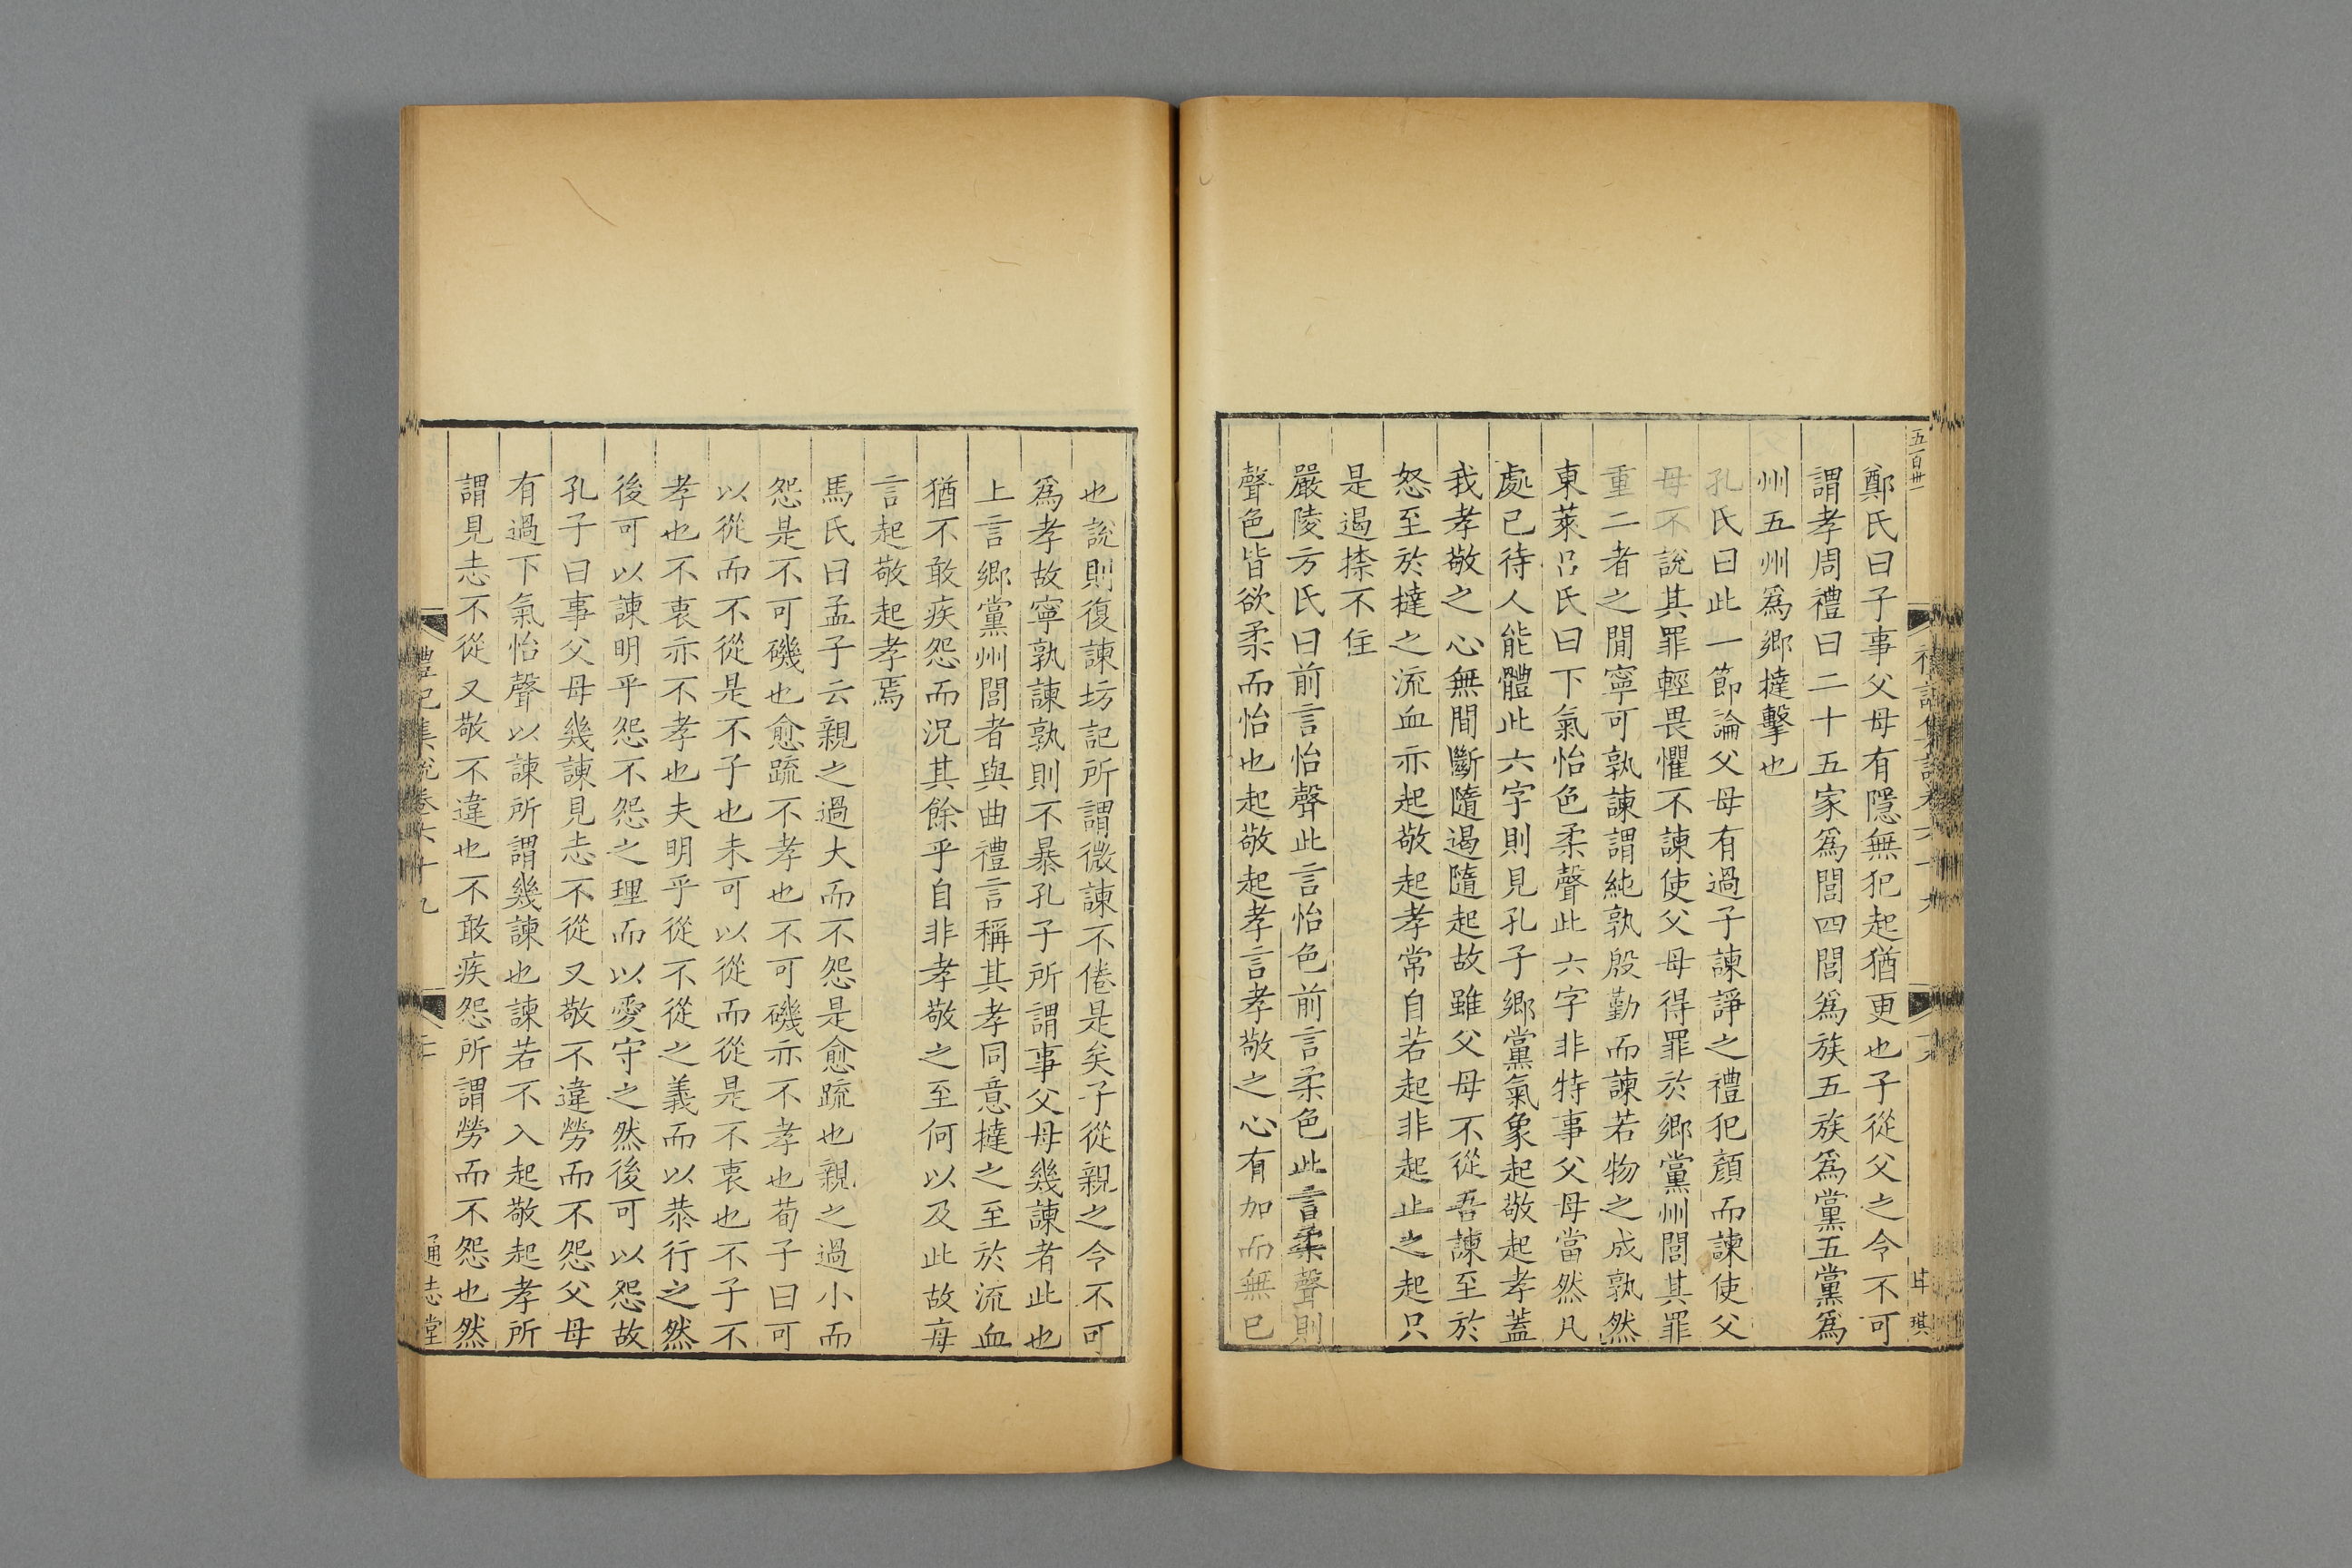 五百卅一
鄭氏曰子事父母有隱無犯起猶更也子從父之令不可
謂孝周禮曰二十五家爲閭四閭爲族五族爲黨五黨爲
州五州爲鄉撻擊也
孔氏曰此一節論父母有過子諫諍之禮犯顏而諫使父
母不說其罪輕畏懼不諫使父母得罪於鄉黨州閭其罪
重二者之閒寧可孰諫謂純孰殷勤而諫若物之成孰然
東萊呂氏曰下氣怡色柔聲此六字非特事父母當然凡
處已待人能體此六字則見孔子鄉黨氣象起敬起孝蓋
我孝敬之心無間斷隨遏隨起故雖父母不從吾諫至於
怒至於撻之流血亦起敬起孝常自若起非起止之起只
是遏捺不住
嚴陵方氏曰前言怡聲此言怡色前言柔色此言柔聲則
聲色皆欲柔而怡也起敬起孝言孝敬之心有加而無已
也說則復諫坊記所謂微諫不倦是矣子從親之令不可
爲孝故寧孰諫孰則不暴孔子所謂事父母幾諫者此也
上言鄉黨州閭者與曲禮言稱其孝同意撻之至於流血
猶不敢疾怨而況其餘乎自非孝敬之至何以及此故每
言起敬起孝焉
馬氏曰孟子云親之過大而不怨是愈疏也親之過小而
怨是不可磯也愈疏不孝也不可磯亦不孝也荀子曰可
以從而不從是不子也未可以從而從是不衷也不子不
孝也不衷亦不孝也夫明乎從不從之義而以恭行之然
後可以諫明乎怨不怨之理而以愛守之然後可以怨故
孔子曰事父母幾諫見志不從又敬不違勞而不怨父母
有過下氣怡聲以諫所謂幾諫也諫若不入起敬起孝所
謂見志不從又敬不違也不敢疾怨所謂勞而不怨也然
禮記集說卷六十九
通志堂